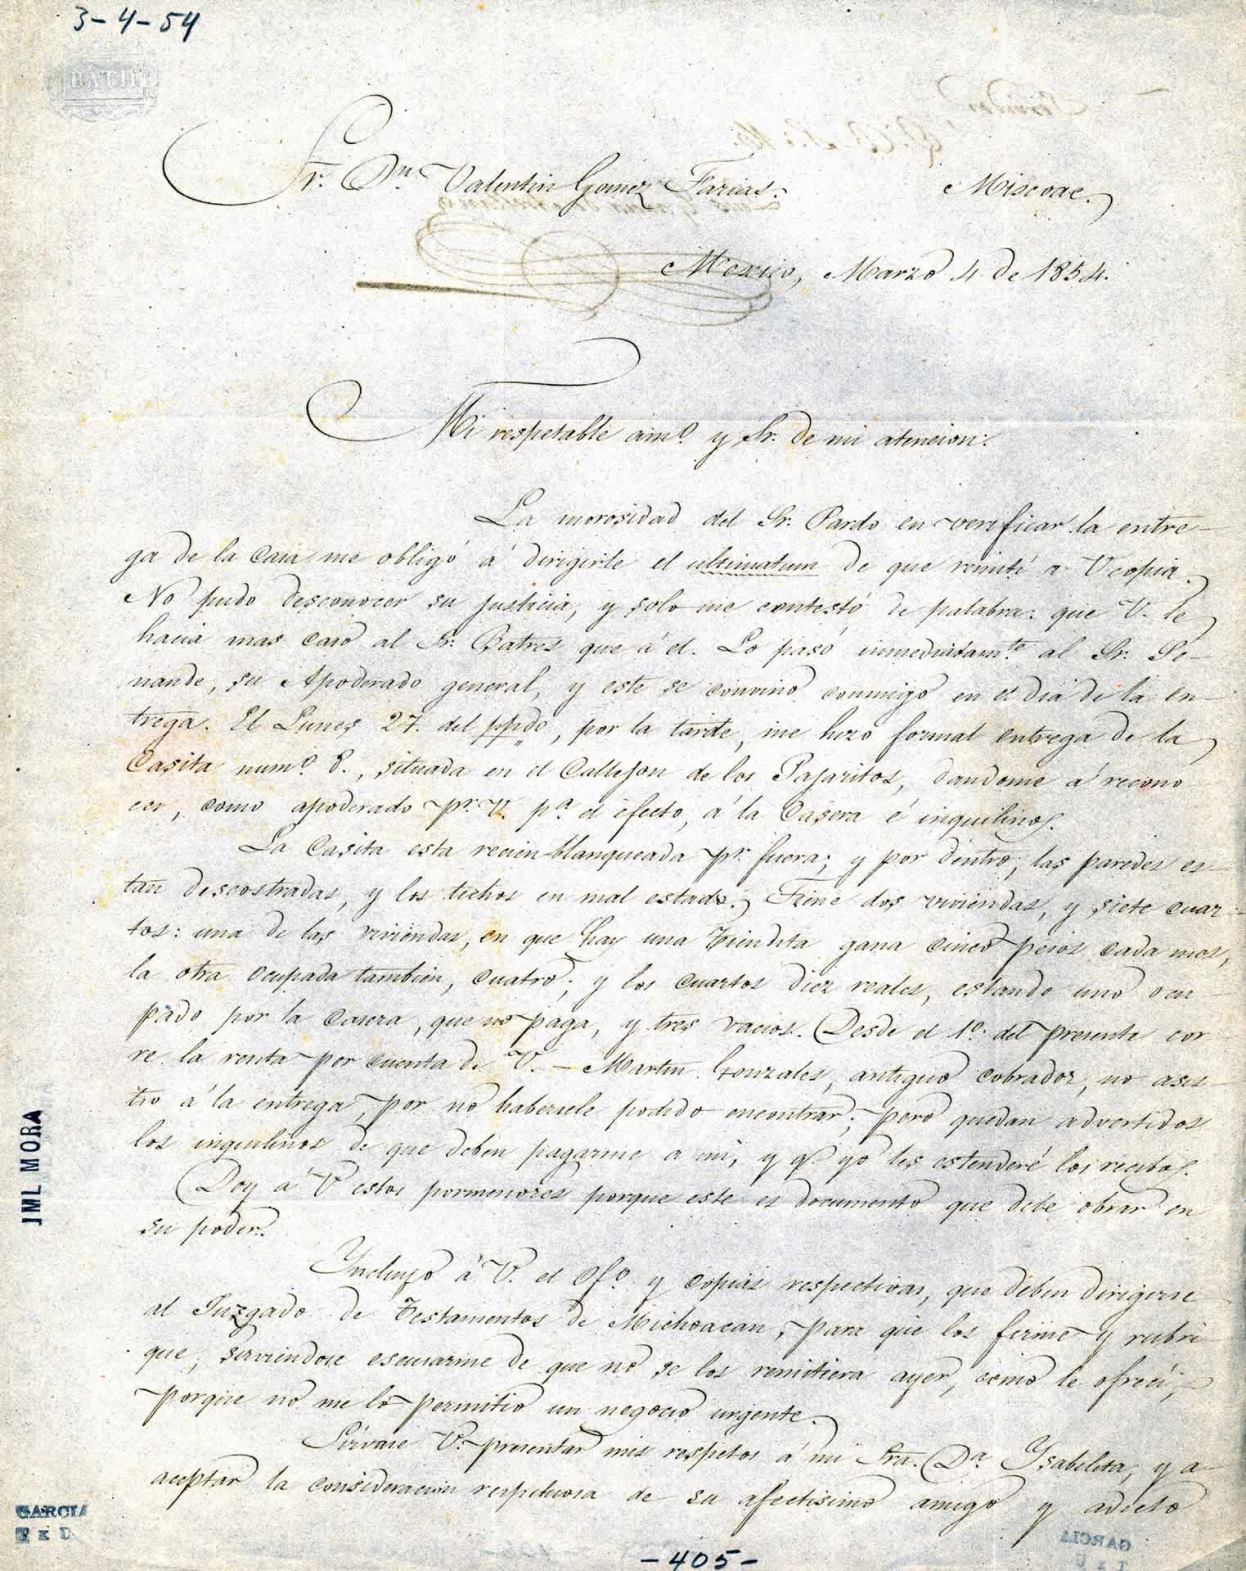 3-4-54
BATH
Sr. Dn. Valentin Gomez Farias. Miscoac.
Mexico, Marzo 4 de 1854.
Mi respetable amo. y Sr. de mi atencion:
La morosidad del Sr. Pardo en verificar la entre-
ga de la casa me obligó á dirigirle el ultimatum de que remití a V copia.
No pudo desconocer su justicia, y solo me contestó de palabra: que V. le
hacia mas caso al Sr. Batres que á él. Lo pasó inmediatamte. al Sr.
su Apoderado general, y este se convino conmigo en el dia de la en-
trega. El Lunes 27. del ppdo, por la tarde, me hizo formal entrega de la
Casita numo. 8., situada en el Callejon de los Pajaritos, dandome á recono-
cer, como apoderado pr. V. pa. el efecto, á la Casera é inquilinos.
La Casita esta recien blanqueada pr. fuera; y por dentro, las paredes es-
tan descostradas, y los techos en mal estado. Tiene dos viviendas, y siete cuar-
tos: una de las viviendas, en que hay una tiendita gana cinco pesos cada mes,
la otra ocupada tambien, cuatro; y los cuartos diez reales, estando uno ocu-
pado por la casera, que no paga, y tres vacios. Desde el 1o. del presente cor-
re la renta por cuenta de V. - Martin Gonzales, antiguo cobrador, no asis-
tio á la entrega, por no habersele podido encontrar; pero quedan advertidos
los inquilinos de que deben pagarme a mi, y q. yo les estenderé los recibos.
Doy á V estos pormenores porque este es documento que debe obrar en
su poder.
Incluyo á V. el ofo. y copias respectivas, que deben dirigirse
al Juzgado de Testamentos de Michoacan, para que los firme y rubri-
que; sirviendose escusarme de que no se los remitiera ayer, como le ofrecí,
porque no me lo permitio un negocio urgente.
Sirvase V. presentar mis respetos á mi Sra. Da. Ysabelita, y a-
ceptar la consideracion respetuosa de su afectisimo amigo y adicto
JML MORA
GARCIA
-405-
GARCIA